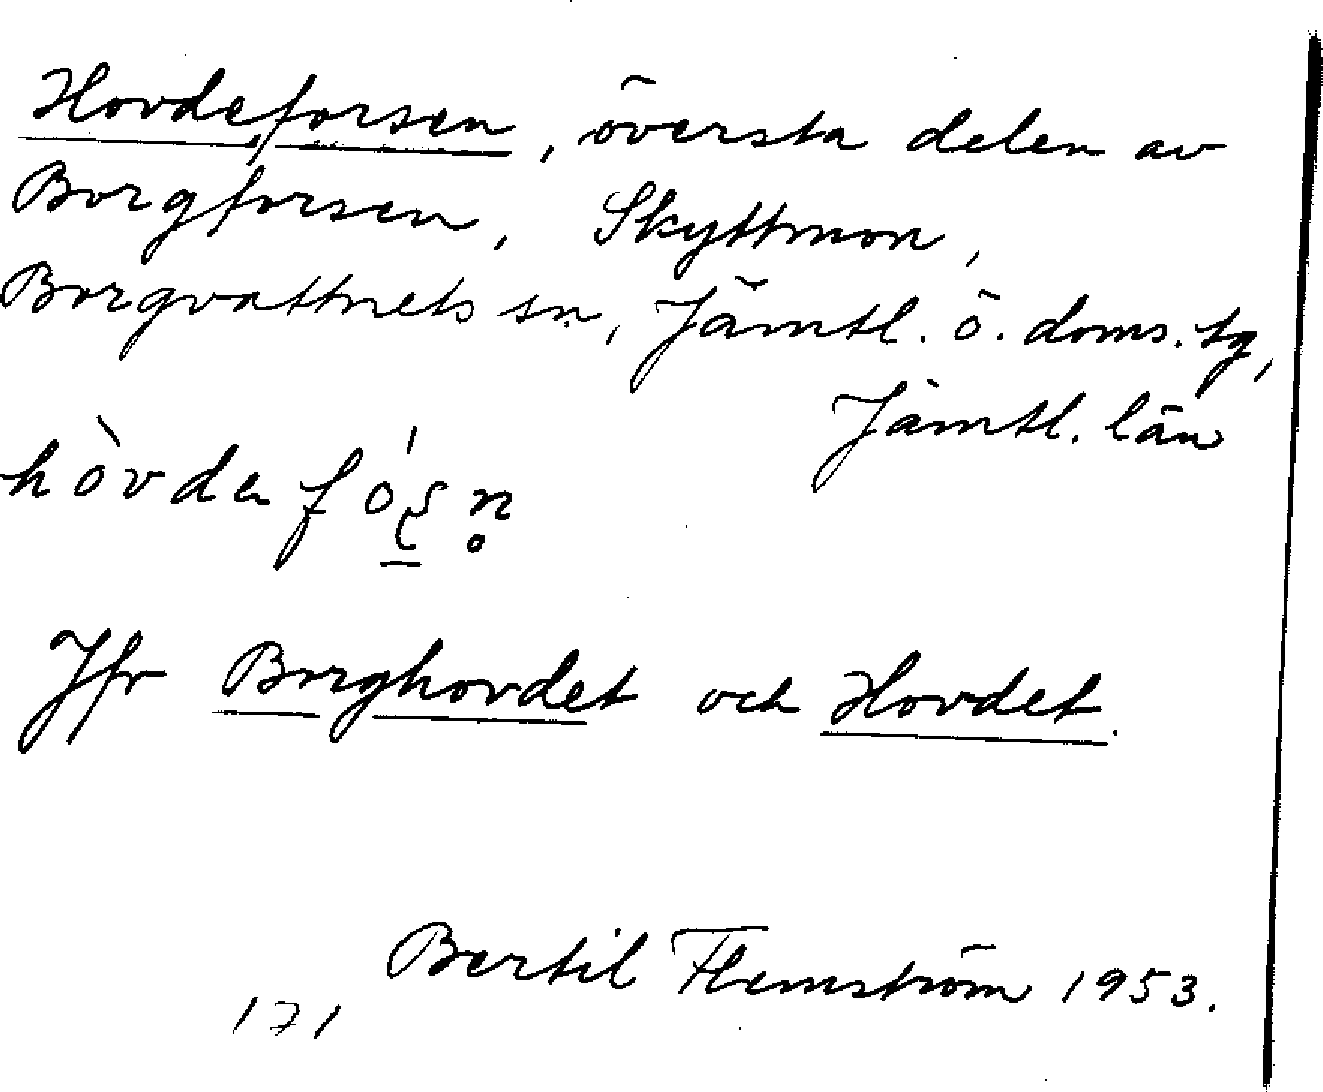 Hovdeforsen, översta delen av
Borgforsen, Skyttmon,
Borgvattnets sn, Jämtl. ö. doms. tg,
Jämtl. län
Jfr Borghovdet och Hovdet.
Bertil Flemström 1953.
171